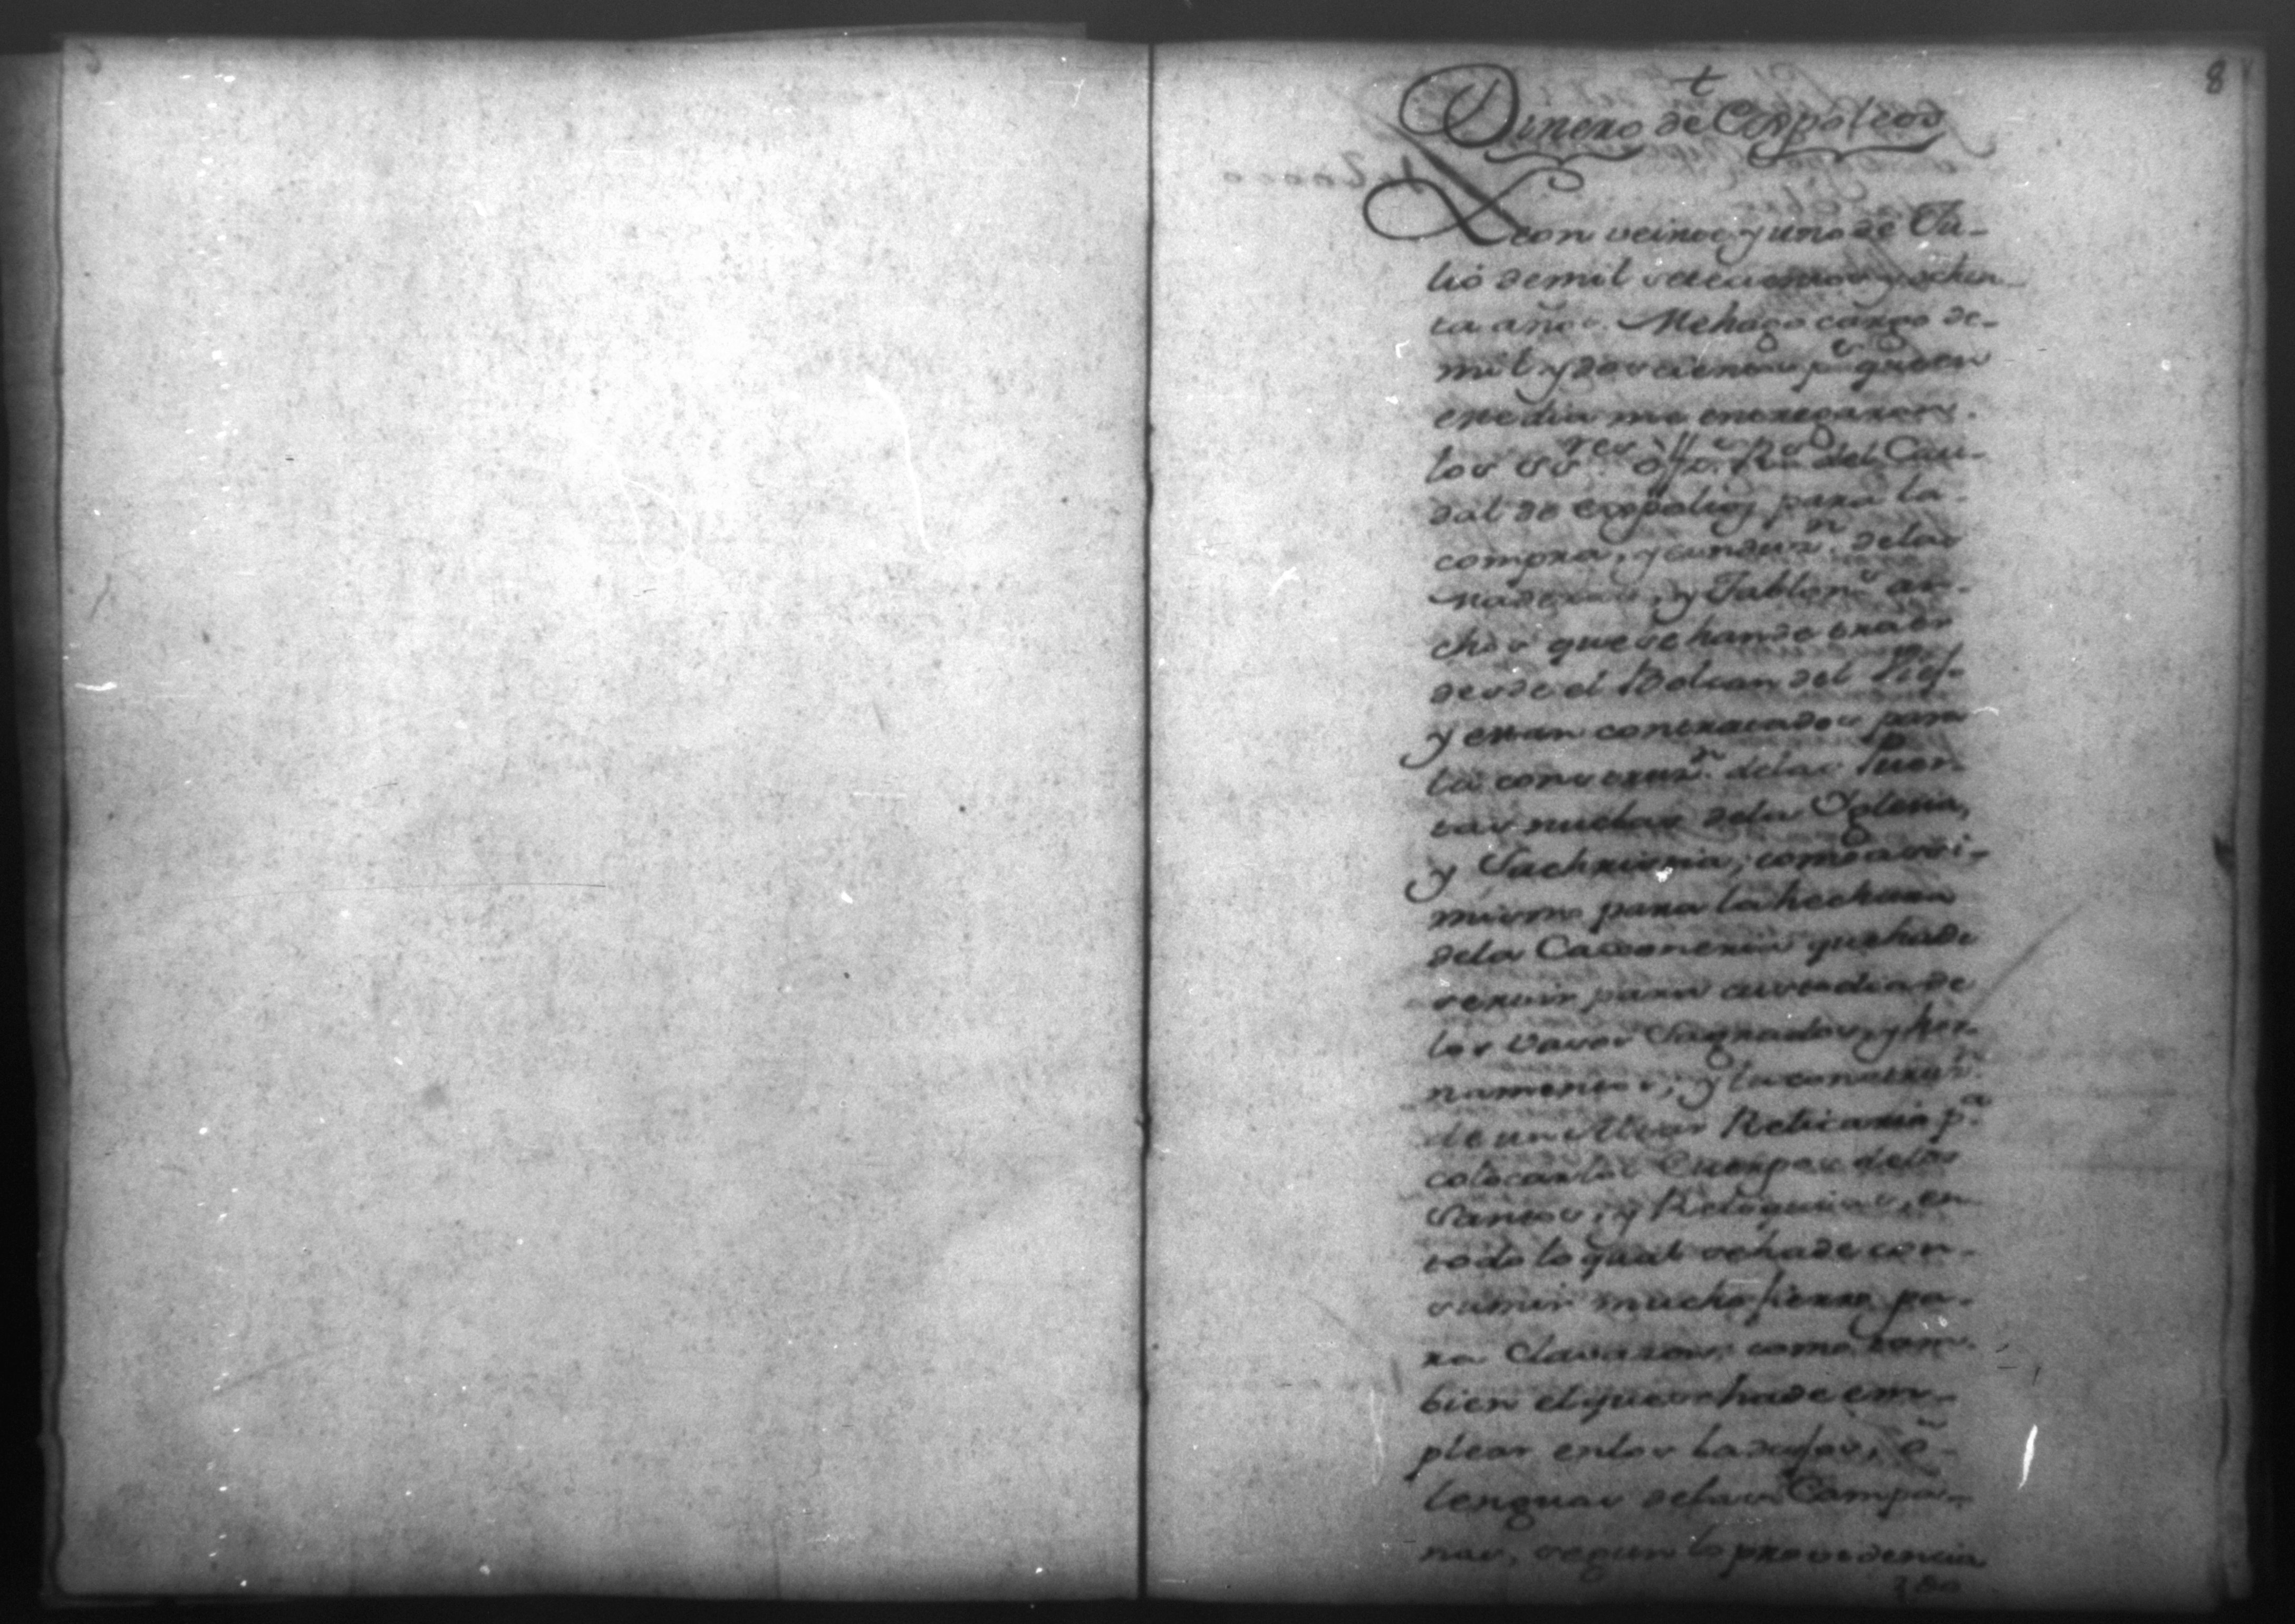 8
t
Dinero de Expolios
Leon veinte y uno de Ju-
lio de mil setecientos y ochen-
ta años. Me hago cargo de-
mil y doscientos p.s que en
este dia me entregaron.
los SS.res off.s R.s del Cau-
dal de expolios para la-
compra, y conduz.n delas
maderas, y Tablon.s an-
chos que se han de traer
desde el Bolcan del Viejo
y estan contratados para
la construz.n delas Puer-
tas nuebas dela Yglesia,
y Sachristia, como assi-
mismo para la hechura
dela Caxoneria que ha de
servir para custodia de
los vasos Sagrados, y hor-
namentos; y la construz.n
de un Altar Relicario p.a
colocar los Cuerpos delos
Santos, y Reliquias, en
todo lo qual se ha de con-
sumir mucho fierro pa-
ra Clavazon, como tam-
bien el que se ha de em-
plear en los badajos, ô-
lenguas delas Campa-
nas, segun lo providencia